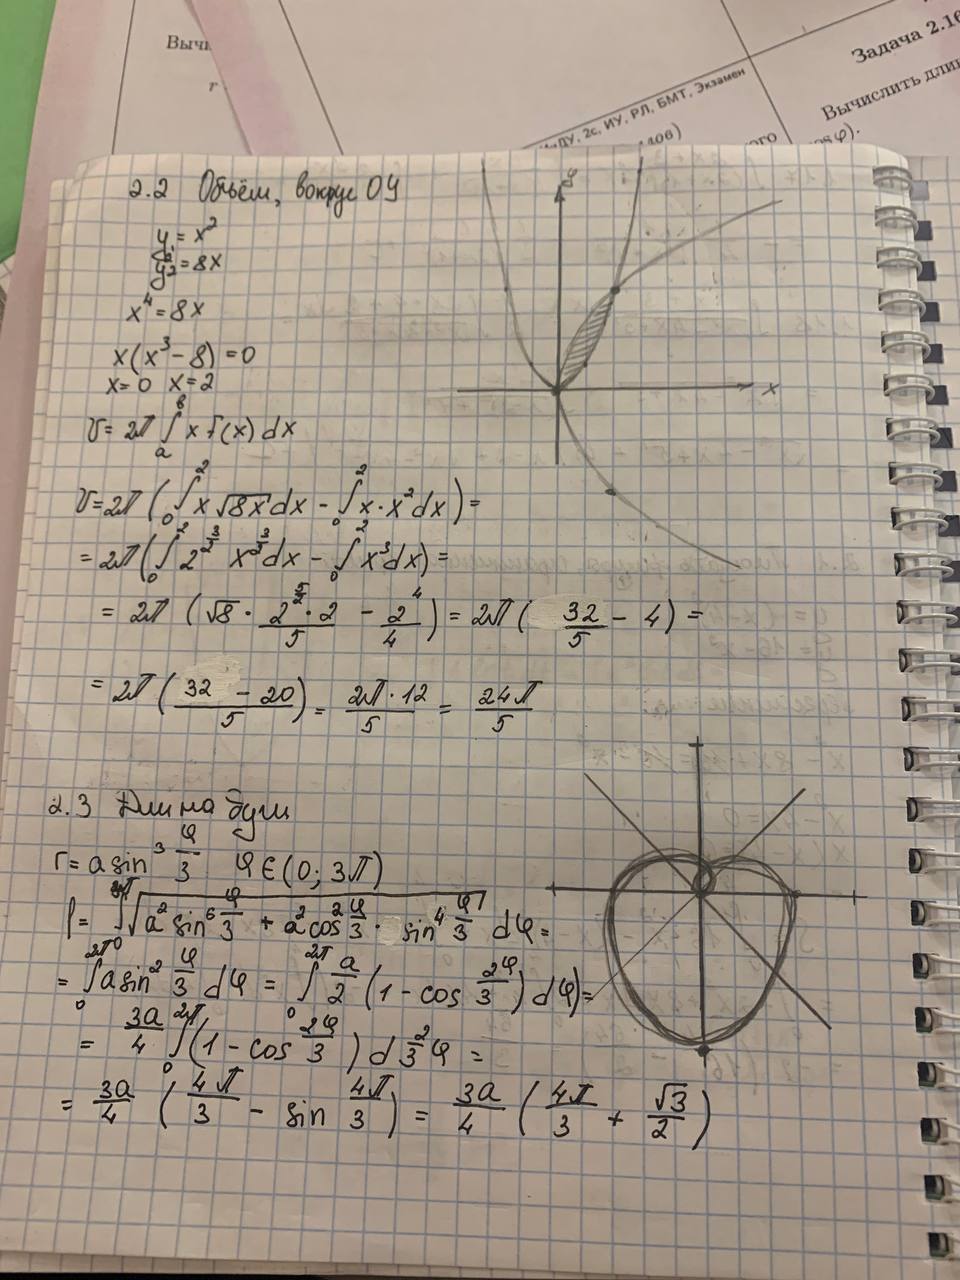 Вычи
r
ИУ, РЛ, БМТ, Экзамен
Задача 2.16
Вычислить длин
2.2 Объём, вокруг OY
y = x²
y² = 8x
x⁴ = 8x
x(x³ - 8) = 0
x = 0 x = 2
V = 2π ∫ₐᵇ x f(x) dx
V = 2π (∫₀² x √8x dx - ∫₀² x · x² dx) =
= 2π (∫₀² 2^(3/2) x^(3/2) dx - ∫₀² x³ dx) =
= 2π (√8 · (2^(5/2) · 2)/5 - 2⁴/4) = 2π (32/5 - 4) =
= 2π ((32 - 20)/5) = (2π · 12)/5 = 24π/5
y
x
2.3 Длина дуги
r = a sin³ φ/3 φ ∈ (0; 3π)
l = ∫ √(a² sin⁶ φ/3 + a² cos² φ/3 · sin⁴ φ/3) dφ =
= ∫₀^(2π) a sin² φ/3 dφ = ∫₀^(2π) a/2 (1 - cos 2φ/3) dφ =
= 3a/4 ∫₀^(2π) (1 - cos 2φ/3) d 2/3 φ =
= 3a/4 (4π/3 - sin 4π/3) = 3a/4 (4π/3 + √3/2)